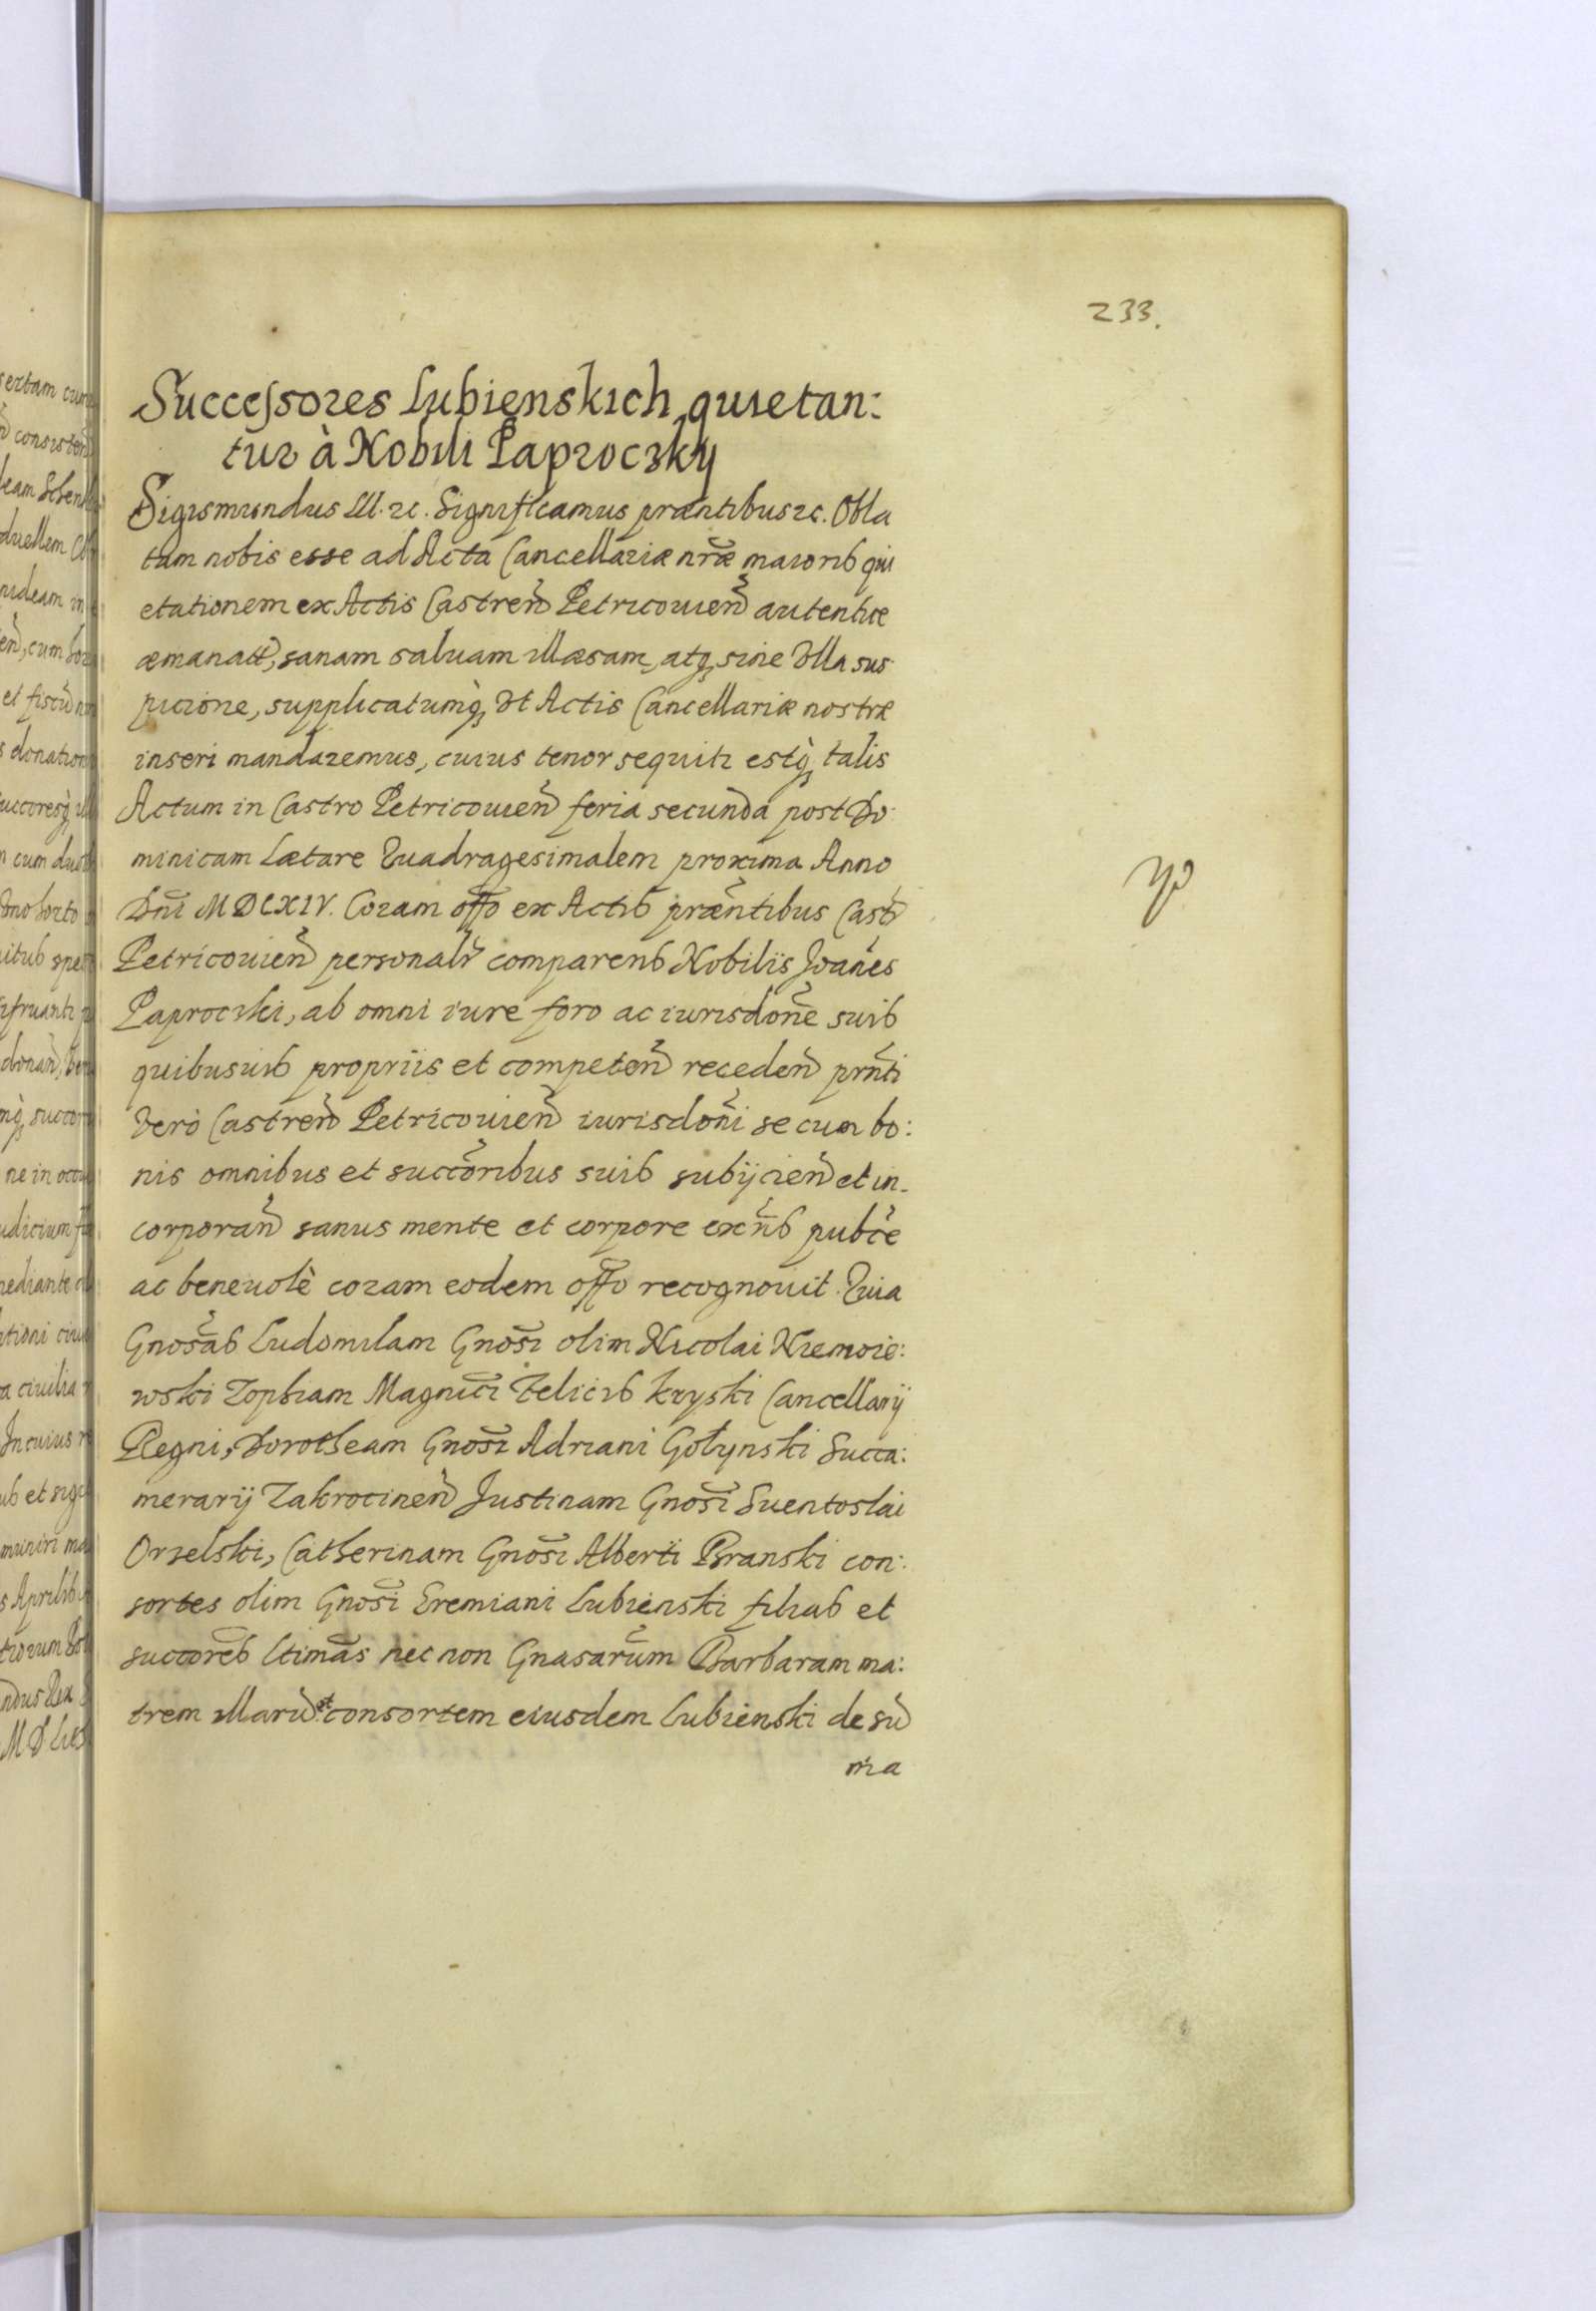 233.
Successores Lubienskich quietan:
tur à Nobili Paproczky
Sigismundus III. &c. Significamus præntibus &c. Obla
tam nobis esse ad Acta Cancellariæ nr̃æ maioris qui
etationem ex Actis Castreñ Petricouieñ autentice
æmanatt, sanam saluam illæsam, atq sine vlla sus
picione, supplicatumq̀ vt Actis Cancellariæ nostræ
inseri mandaremus, cuius tenor sequitr estq̀ talis
Actum in Castro Petricouieñ feria secunda post Do
minicam Lætare Quadragesimalem proxima Anno
Dñi MDCXIV. Coram offo ex Actis præñtibus Castr̃
Petricouieñ personalr̃ comparens Nobilis Joañes
Paprocski, ab omni iure foro ac iurisdoñe suis
quibusuis propriis et competeñ recedeñ prñti
verò Castreñ Petricouieñ iurisdoñi se cum bo:
nis omnibus et succõribus suis subijcieñ et in-
corporañ sanus mente et corpore exñs pubcè
ac beneuolè coram eodem offo recognouit. Quia
Gnosãs Ludomilam Gnosĩ olim Nicolai Niemoie:
wski Zophiam Magnicĩ Felicis kryski Cancellarij
Regni, Dorotheam Gnosĩ Adriani Gołynski Succa:
merarij Zakrocineñ Justinam Gnosĩ Suentoslai
Orzelski, Catherinam Gnosĩ Alberti Branski con:
sortes olim Gnosĩ Eremiani Lubienski filias et
succorẽs ltimãs nec non Gnasarũm Barbaram ma:
trem illarũ et consortem eiusdem Lubienski de sũ
ma